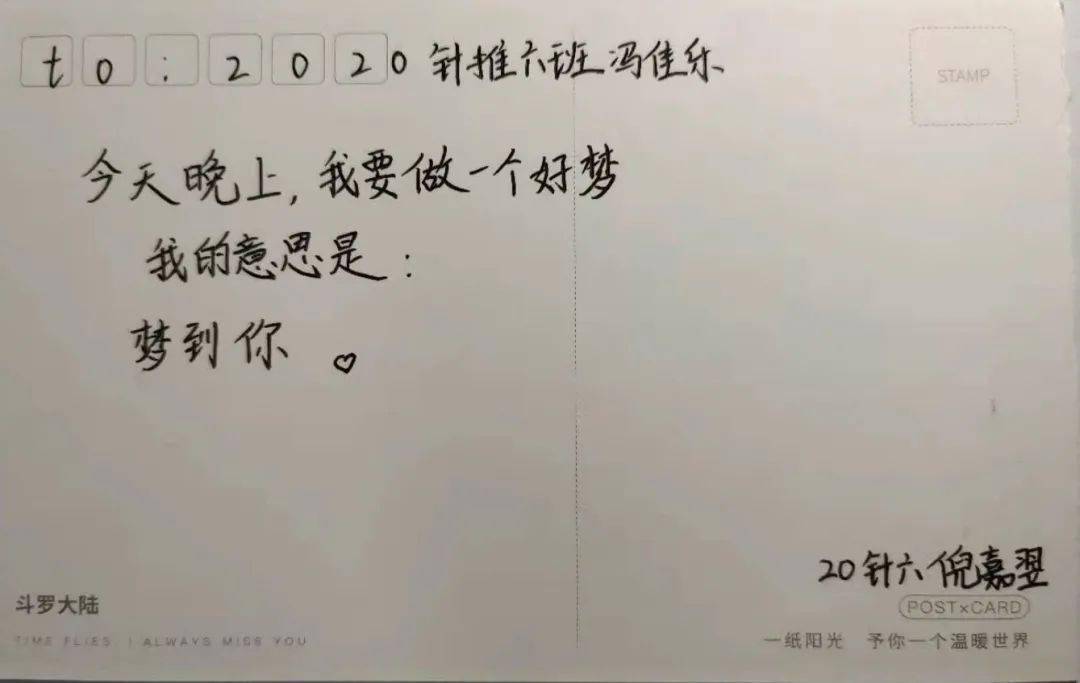 to:2020 针推六班冯佳乐
STAMP
今天晚上,我要做一个好梦
我的意思是:
梦到你 ♡
20针六 倪嘉翌
斗罗大陆
POST×CARD
TIME FLIES. I ALWAYS MISS YOU
一纸阳光 予你一个温暖世界